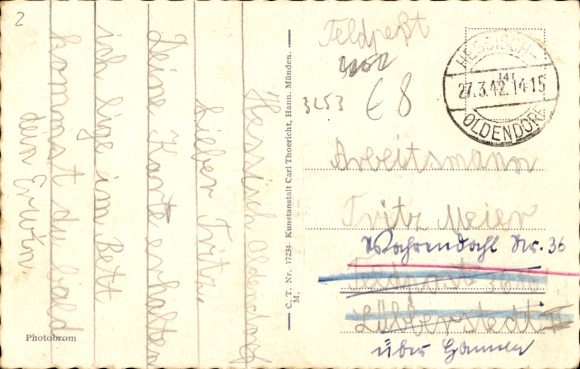 2
Hessisch Oldendorf
Lieber Fritz,
Deine Karte erhalten
ich lige im Bett
kommst du bald
dein Erwin.
Photobrom
C. T. Nr. 17234 Kunstanstalt Carl Thoericht, Hann. Münden.
M.
Feldpost
3253 € 8
HESSISCH
27.3.42.14-15
OLDENDORF
Arbeitsmann
Fritz Meier
Wahrendahl Nr. 36
Lübberstedt II
über Hameln